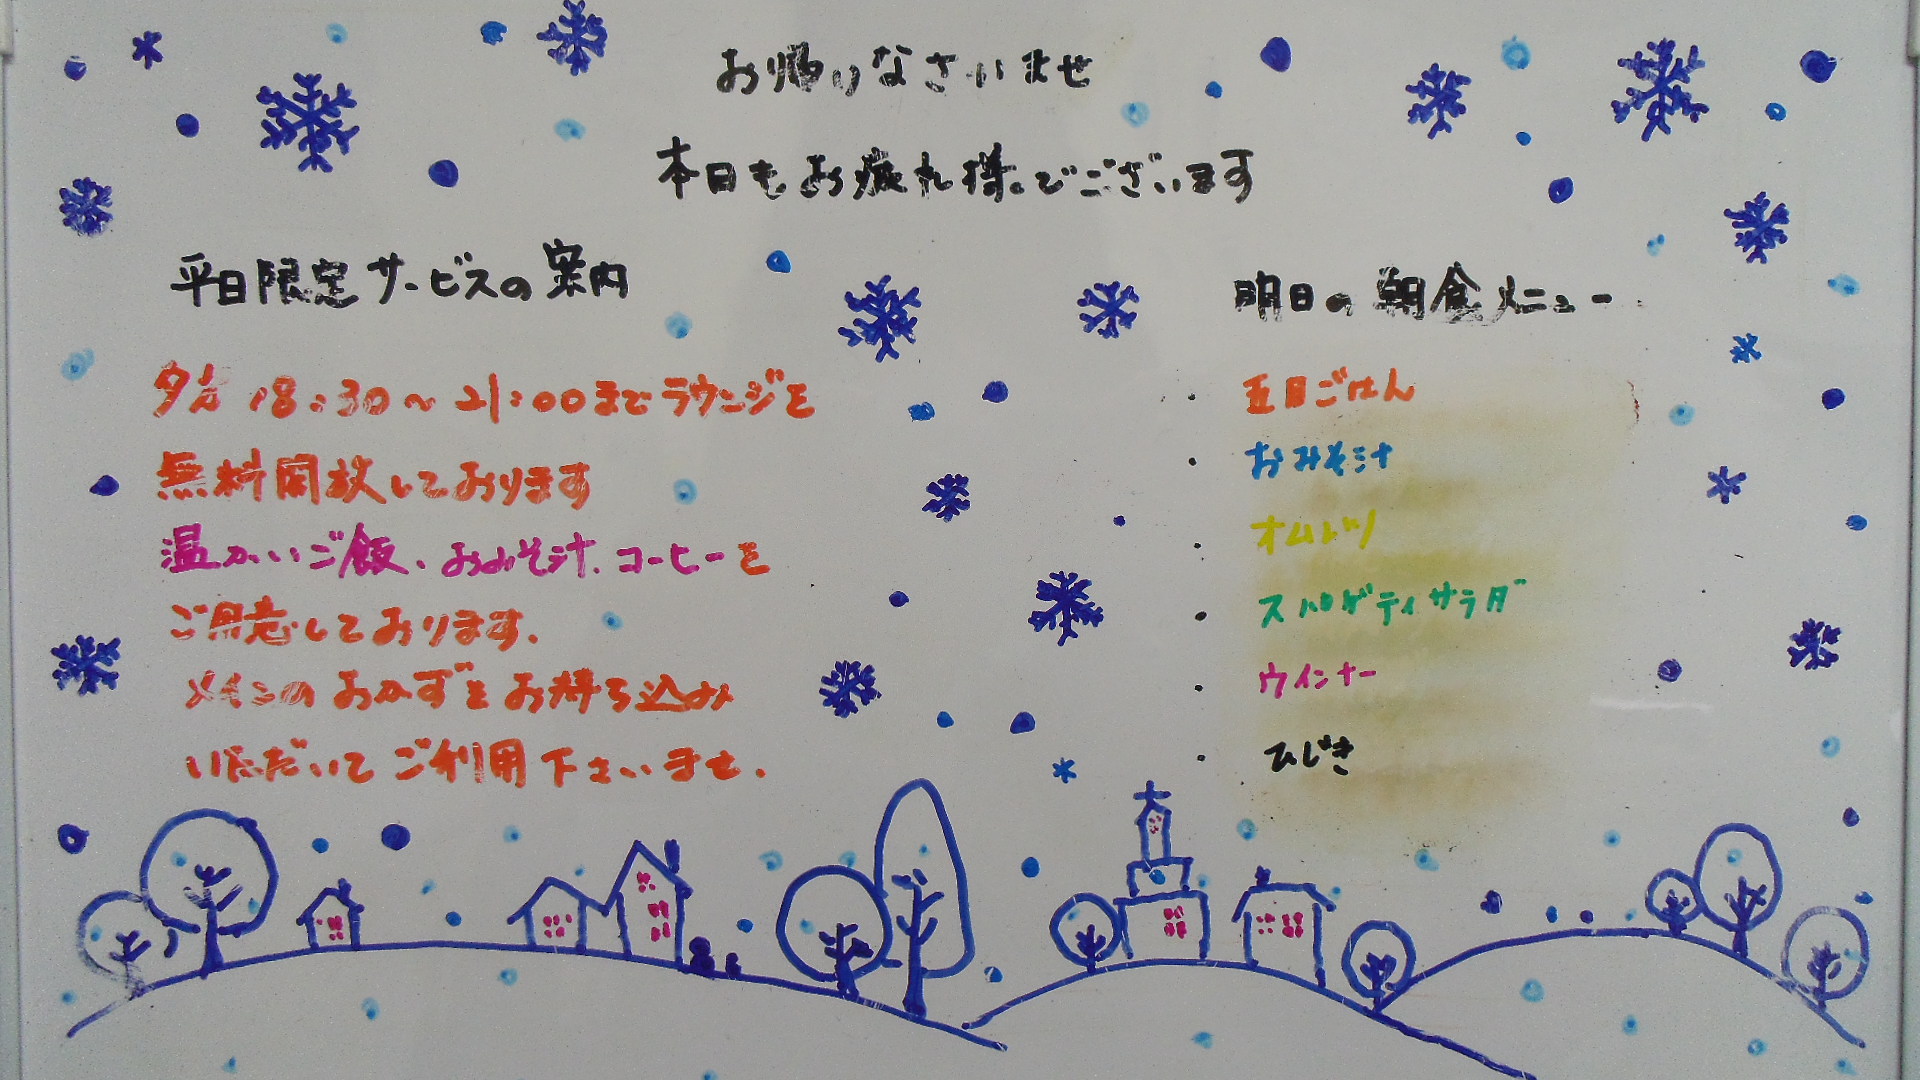 お帰りなさいませ
本日もお疲れ様でございます
平日限定サービスの案内
夕方 18:30～21:00までラウンジを
無料開放しております
温かいご飯、おみそ汁、コーヒーを
ご用意しております。
メインのおかずをお持ち込み
いただいてご利用下さいませ。
明日の朝食メニュー
・五目ごはん
・おみそ汁
・オムレツ
・スパゲティサラダ
・ウインナー
・ひじき